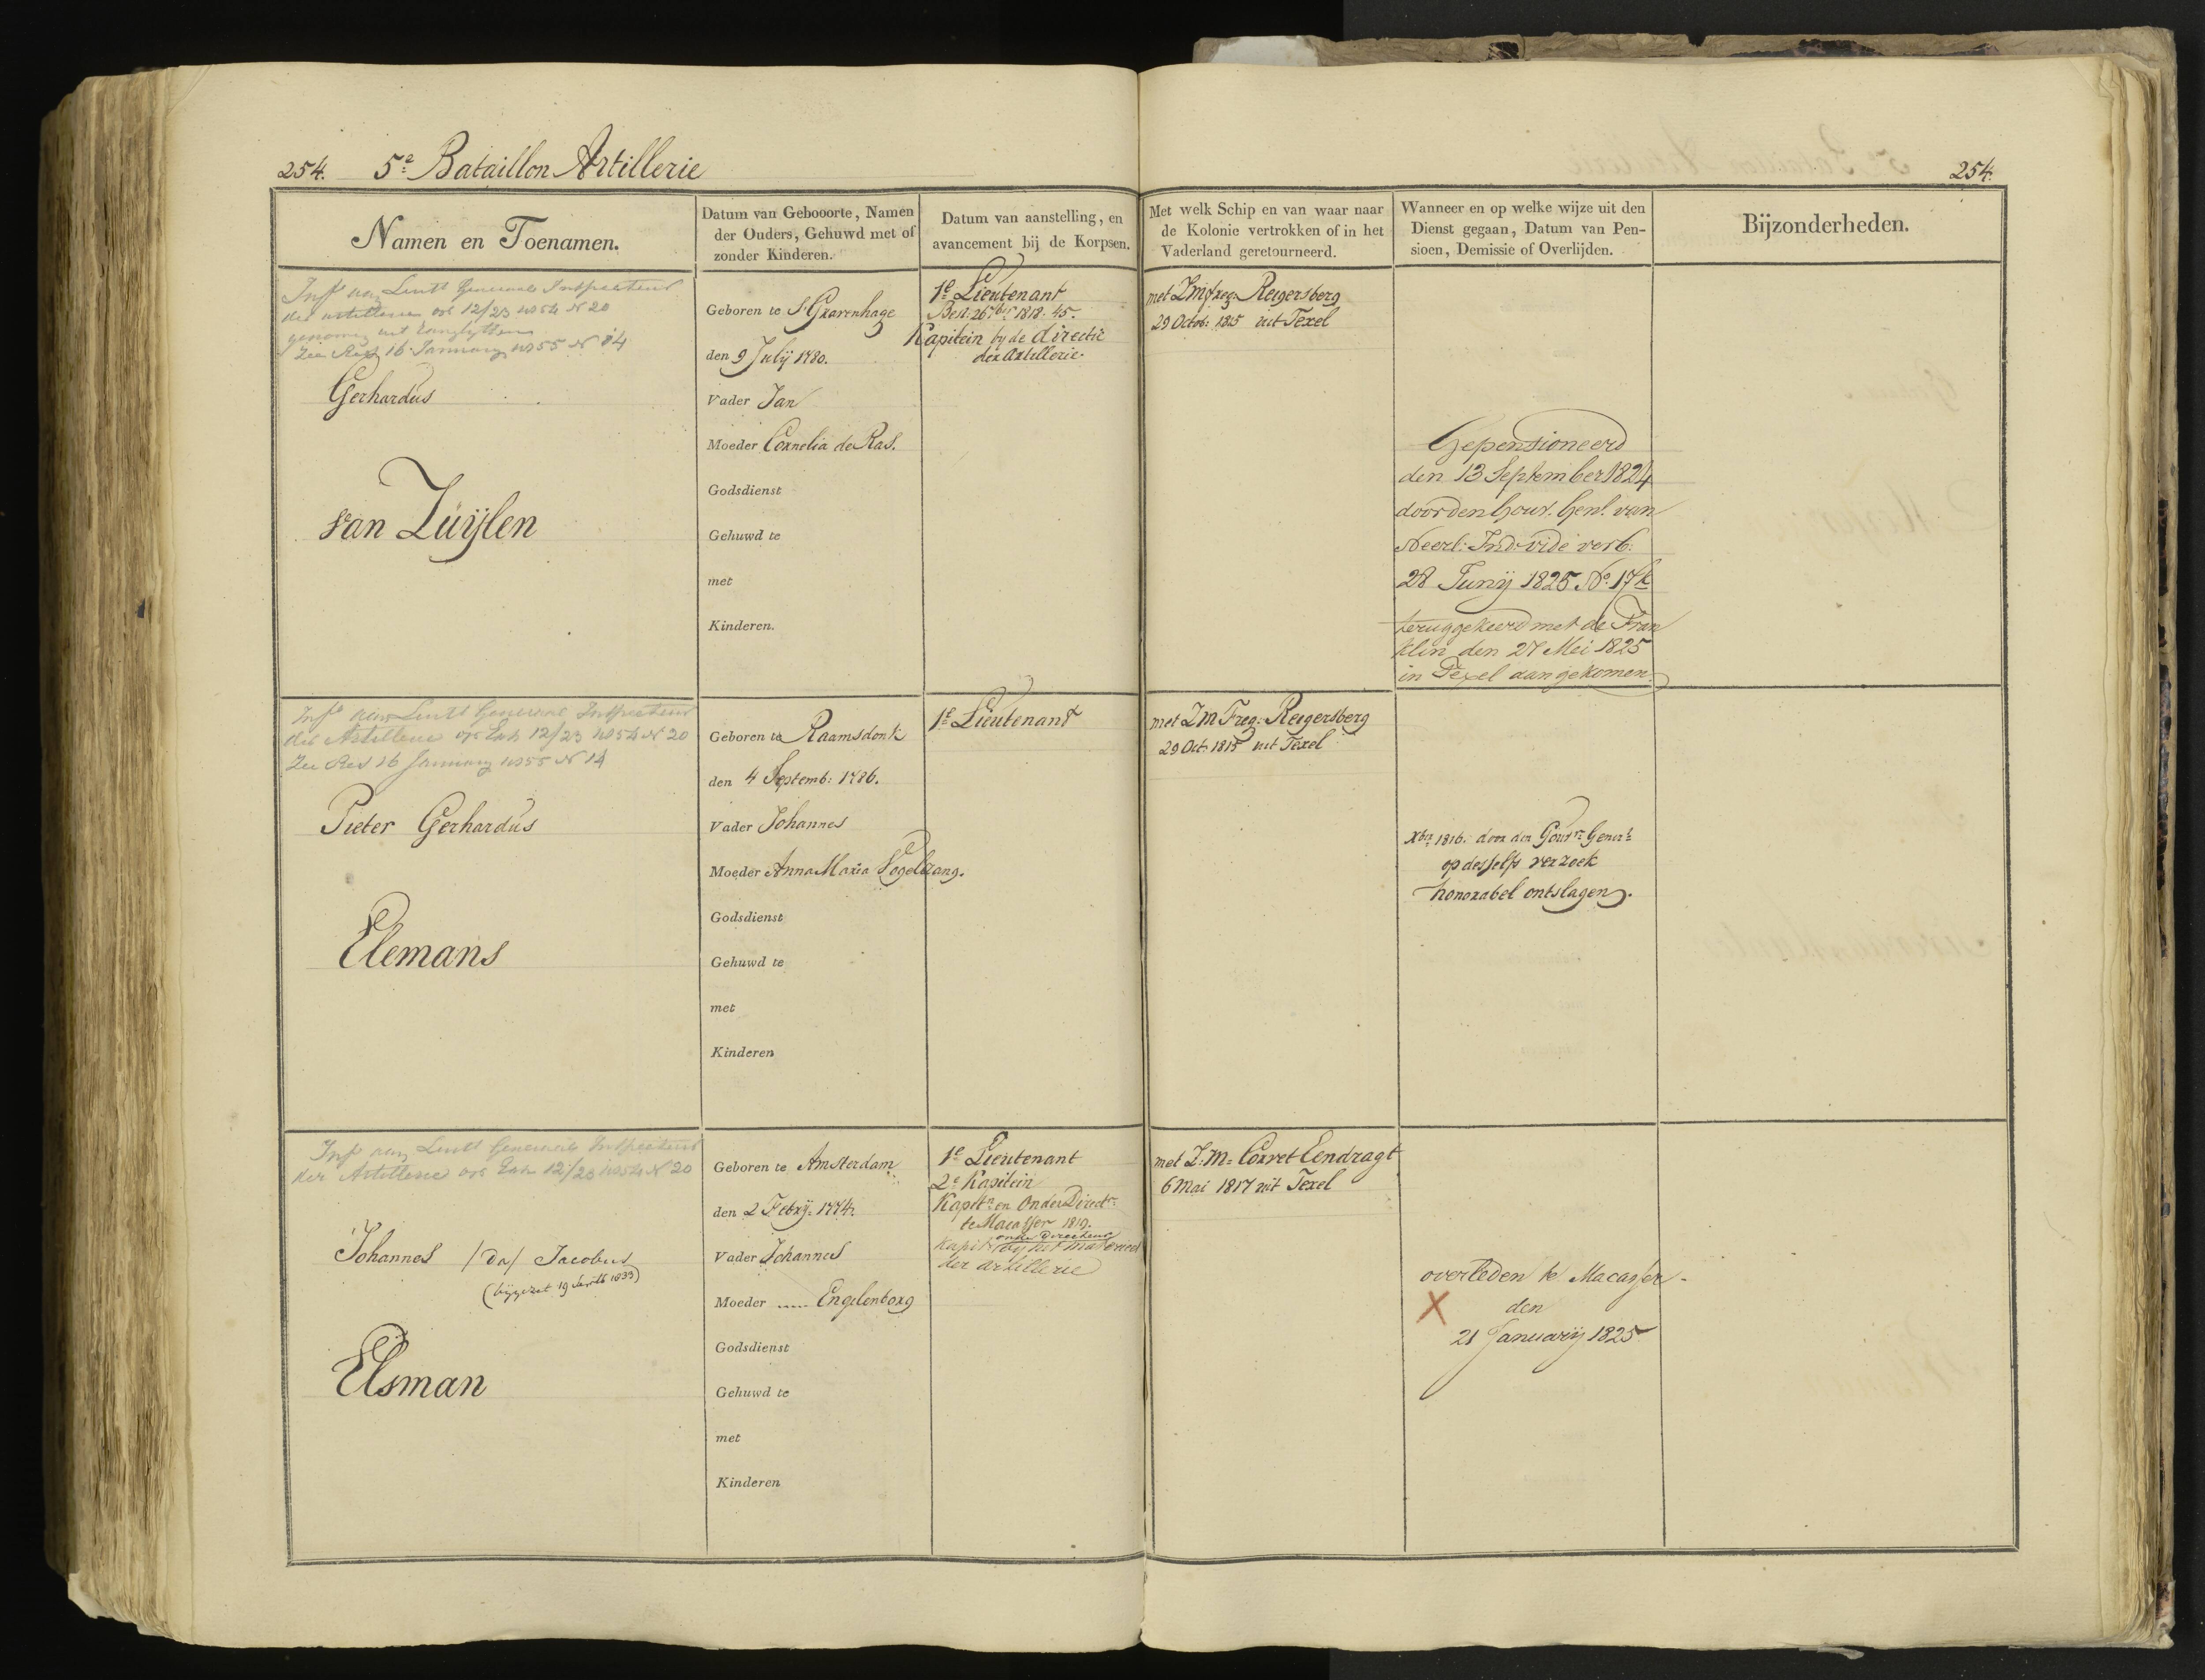 254. 5e Bataillon Artillerie
254.
Namen en Toenamen.
Datum van Gebooorte, Namen
der Ouders, Gehuwd met of
zonder Kinderen.
Datum van aanstelling, en
avancement bij de Korpsen.
Met welk Schip en van waar naar
de Kolonie vertrokken of in het
Vaderland geretourneerd.
Wanneer en op welke wijze uit den
Dienst gegaan, Datum van Pen-
sioen, Demissie of Overlijden.
Bijzonderheden.
Luitt Generaal Inspecteur
der artillerie 12/23 No 54 N 20
uit
Zie Res 16 January No 55 N 14
Gerhardus
van Zuijlen
Geboren te S'Gravenhage
den 9 Julij 1780.
Vader Jan
Moeder Cornelia de Ras.
Godsdienst
Gehuwd te
met
Kinderen.
1e Lieutenant
Besl: 26 7ber 1818: 45.
Kapitein by de directie
der Artillerie
met Z M freg: Reigersberg
29 Octob: 1815 uit Texel
Gepensioneerd
den 13 September 1824
door den Gouv. Genl. van
Neerl: Ind: vide verb:
28 Junij 1825 No. 17k
teruggekeerd met de Fran
klin den 27 Mei 1825
in Texel aangekomen
Luitt Generaal Inspecteur
der Artillerie 12/23 No 54 N 20
Zie Res 16 January No 55 N 14
Pieter Gerhardus
Elemans
Geboren te Raamsdonk
den 4 Septemb: 1786.
Vader Johannes
Moeder Anna Maria Vogelzang.
Godsdienst
Gehuwd te
met
Kinderen
1e Lieutenant
met Z M Freg: Reigersberg
29 Oct: 1815 uit Texel
Xber 1816. door den Gouvr: Generl
op desselfs verzoek
honorabel ontslagen.
Luitt Generaal Inspecteur
der Artillerie 12/23 No 54 N 20
Johannes /Da/ Jacobus
(bijgezet 19 1833)
Elsman
Geboren te Amsterdam
den 2 Febrij: 1774.
Vader Johannes
Moeder ..... Engelenborg
Godsdienst
Gehuwd te
met
Kinderen
1e Lieutenant
2e Kapitein
Kaptn en Onder Directr
te Macasser 1819.
onder Directeur
Kapit by het materieel
der artillerie
met Z: M: Corvet Eendragt
6 Mai 1817 uit Texel
overleden te Macasser
X den
21 Januarij 1825